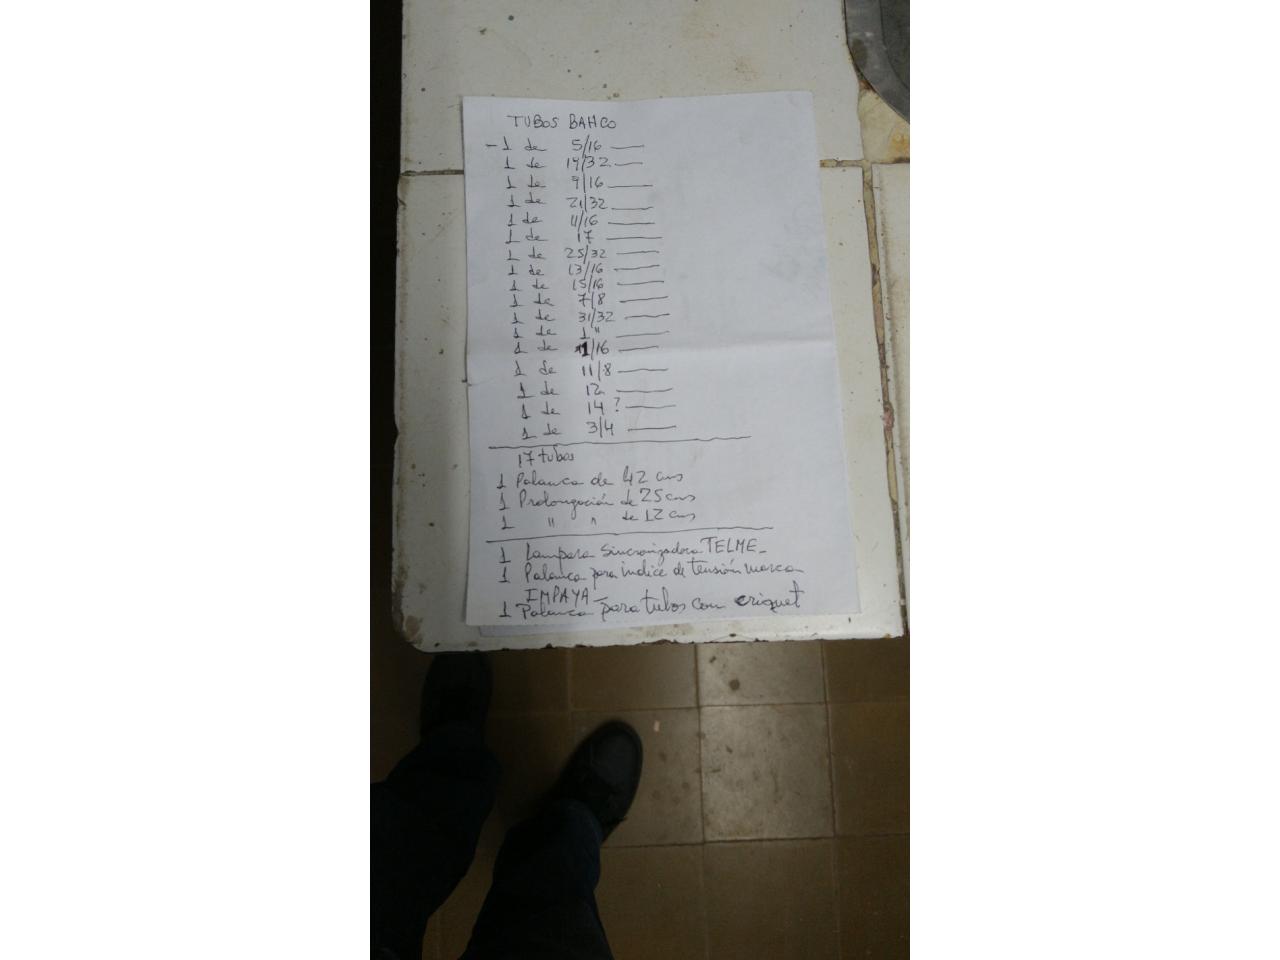 TUBOS BAHCO
- 1 de 5/16
1 de 19/32
1 de 9/16
1 de 21/32
1 de 11/16
1 de 17
1 de 25/32
1 de 13/16
1 de 15/16
1 de 7/8
1 de 31/32
1 de 1"
1 de 1/16
1 de 11/8
1 de 12
1 de 14 ?
1 de 3/4
17 tubos
1 Palanca de 42 cms
1 Prolongación de 25 cms
1 " " de 12 cms
1 Lampara Sincronizadora TELME_
1 Palanca para indice de tensión marca
IMPAYA_
1 Palanca para tubos con criquet